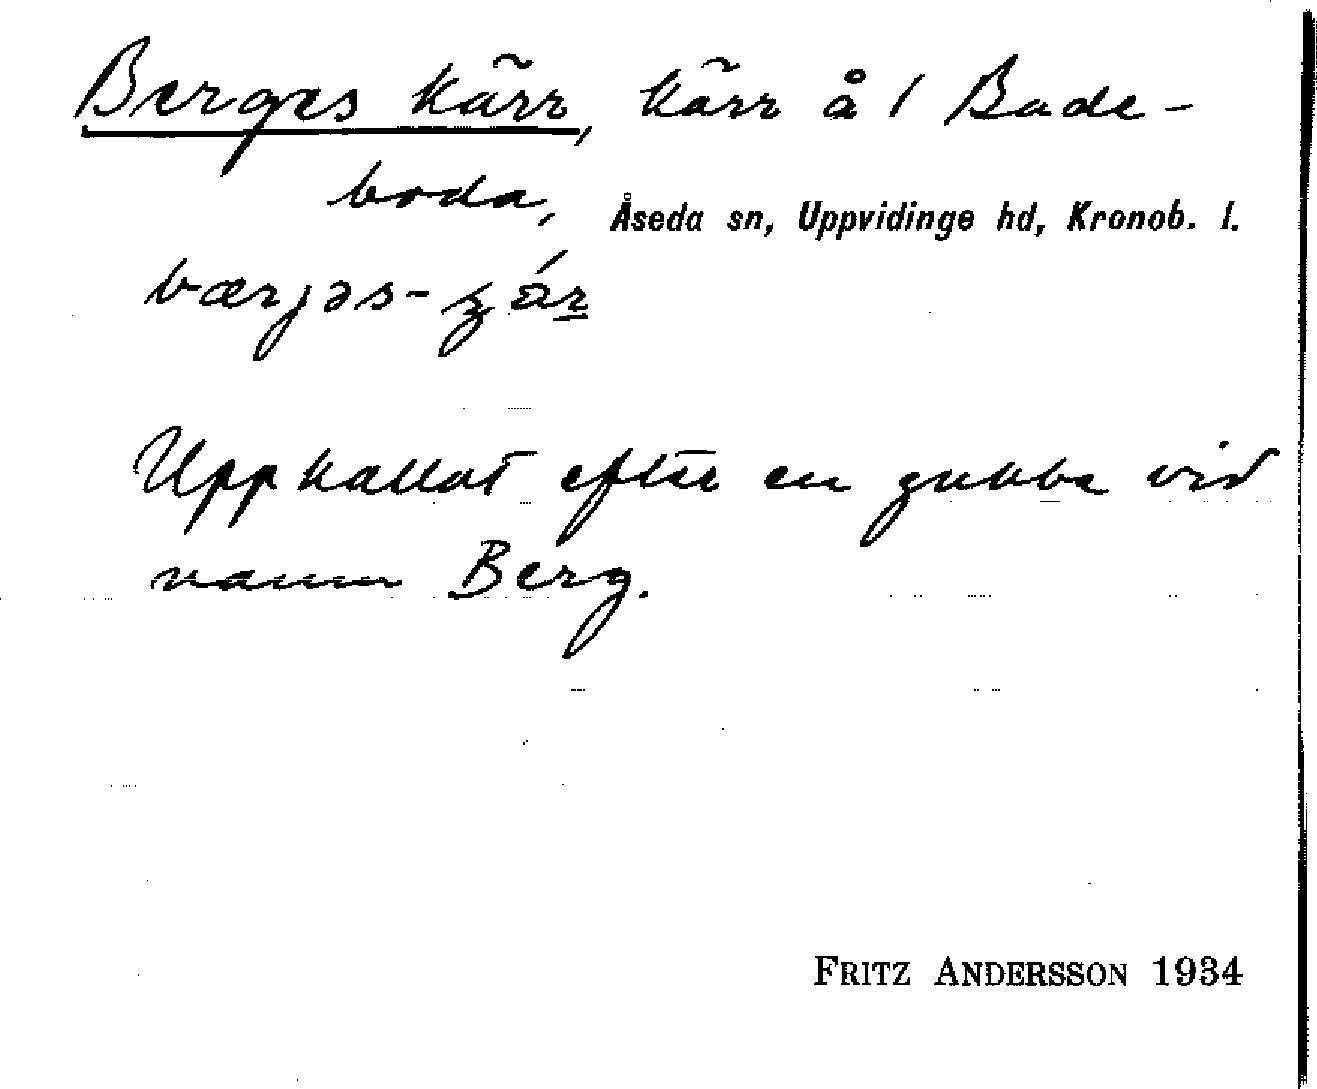 Berges kärr, kärr å 1 Bade-
boda, Åseda sn, Uppvidinge hd, Kronob. l.
bærjəs-
Uppkallat efter en gubbe vid
namn Berg.
FRITZ ANDERSSON 1934